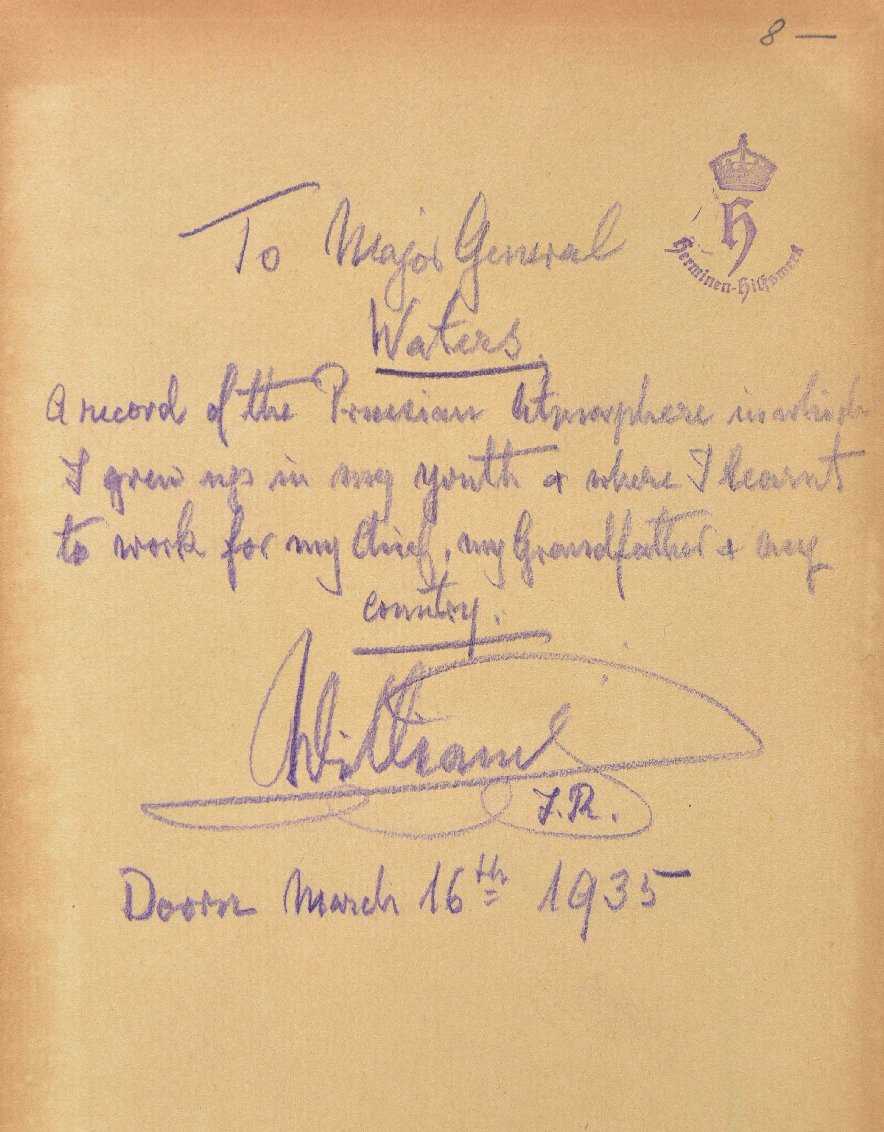 8 —
H
Herminen-Hilfswerk
To Major General
Waters.
A record of the Prussian Atmosphere in which
I grew up in my youth & where I learnt
to work for my Chief, my Grandfather & my
country.
William
I.R.
Doorn March 16th 1935